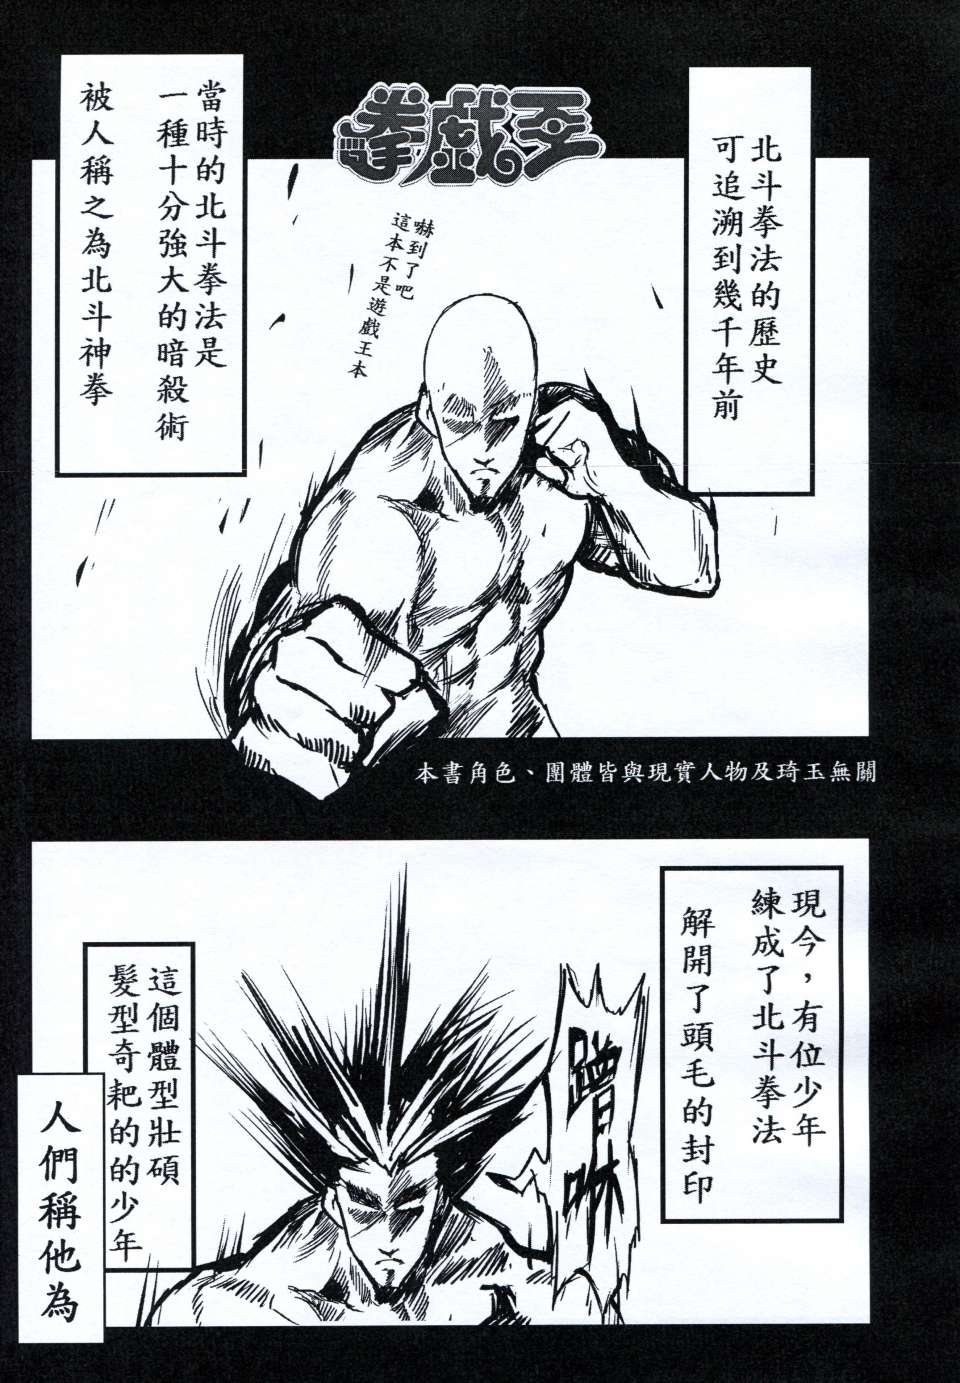 拳戲王
北斗拳法的歷史
可追溯到幾千年前
嚇到了吧
這本不是遊戲王本
當時的北斗拳法是
一種十分強大的暗殺術
被人稱之為北斗神拳
本書角色、團體皆與現實人物及琦玉無關
現今，有位少年
練成了北斗拳法
解開了頭毛的封印
蹭咻
這個體型壯碩
髮型奇耙的的少年
人們稱他為